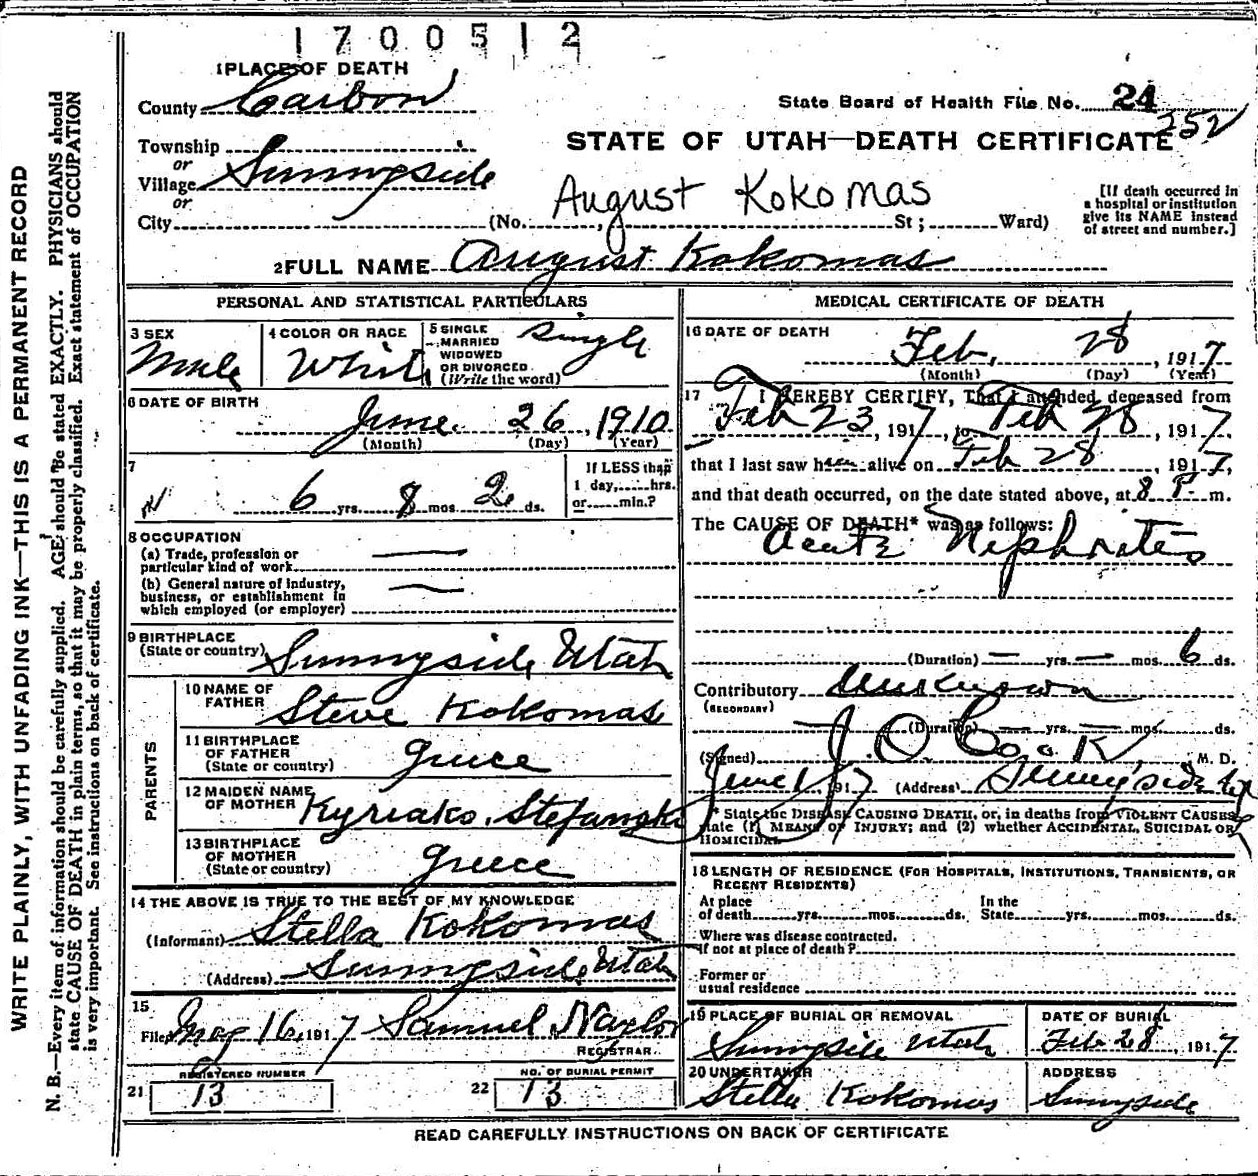 1700512
1 PLACE OF DEATH
County Carbon
State Board of Health File No. 24
252
STATE OF UTAH—DEATH CERTIFICATE
Township
or
Village Sunnyside
or
City (No. August Kokomas St; Ward)
[If death occurred in
a hospital or institution
give its NAME instead
of street and number.]
2 FULL NAME August Kokomas
PERSONAL AND STATISTICAL PARTICULARS
3 SEX
Male
4 COLOR OR RACE
White
5 SINGLE
MARRIED
WIDOWED
OR DIVORCED
(Write the word)
Single
6 DATE OF BIRTH
June 26, 1910
(Month) (Day) (Year)
7
6 yrs. 8 mos. 2 ds.
If LESS than
1 day, hrs.
or min.?
8 OCCUPATION
(a) Trade, profession or
particular kind of work
(b) General nature of industry,
business, or establishment in
which employed (or employer)
9 BIRTHPLACE
(State or country) Sunnyside, Utah
PARENTS
10 NAME OF
FATHER
Steve Kokomas
11 BIRTHPLACE
OF FATHER
(State or country)
Greece
12 MAIDEN NAME
OF MOTHER
Kyriako.
13 BIRTHPLACE
OF MOTHER
(State or country)
Greece
14 THE ABOVE IS TRUE TO THE BEST OF MY KNOWLEDGE
(Informant) Stella Kokomas
(Address) Sunnyside, Utah
15
Filed May 16, 1917 Samuel Naylor
REGISTRAR.
REGISTERED NUMBER
21 13
NO. OF BURIAL PERMIT
22 13
MEDICAL CERTIFICATE OF DEATH
16 DATE OF DEATH
Feb. 28, 1917
(Month) (Day) (Year)
17 I HEREBY CERTIFY, That I attended deceased from
Feb 23, 1917, to Feb 28, 1917
that I last saw him alive on Feb 28, 1917,
and that death occurred, on the date stated above, at 8 P m.
The CAUSE OF DEATH* was as follows:
Acute Nephritis
(Duration) — yrs. — mos. 6 ds.
Contributory Unknown
(SECONDARY)
(Duration) — yrs. — mos. ds.
(Signed) J. O. Cook, M. D.
June 1, 1917 (Address) Sunnyside
* State the DISEASE CAUSING DEATH, or, in deaths from VIOLENT CAUSES,
state (1) MEANS OF INJURY; and (2) whether ACCIDENTAL, SUICIDAL OR
HOMICIDAL
18 LENGTH OF RESIDENCE (FOR HOSPITALS, INSTITUTIONS, TRANSIENTS, OR
RECENT RESIDENTS)
At place
of death yrs. mos. ds.
In the
State yrs. mos. ds.
Where was disease contracted.
If not at place of death?
Former or
usual residence
19 PLACE OF BURIAL OR REMOVAL
Sunnyside Utah
DATE OF BURIAL
Feb 28, 1917
20 UNDERTAKER
Stella Kokomas
ADDRESS
Sunnyside
READ CAREFULLY INSTRUCTIONS ON BACK OF CERTIFICATE
WRITE PLAINLY, WITH UNFADING INK—THIS IS A PERMANENT RECORD
N. B.—Every item of information should be carefully supplied. AGE should be stated EXACTLY. PHYSICIANS should
state CAUSE OF DEATH in plain terms, so that it may be properly classified. Exact statement of OCCUPATION
is very important. See instructions on back of certificate.